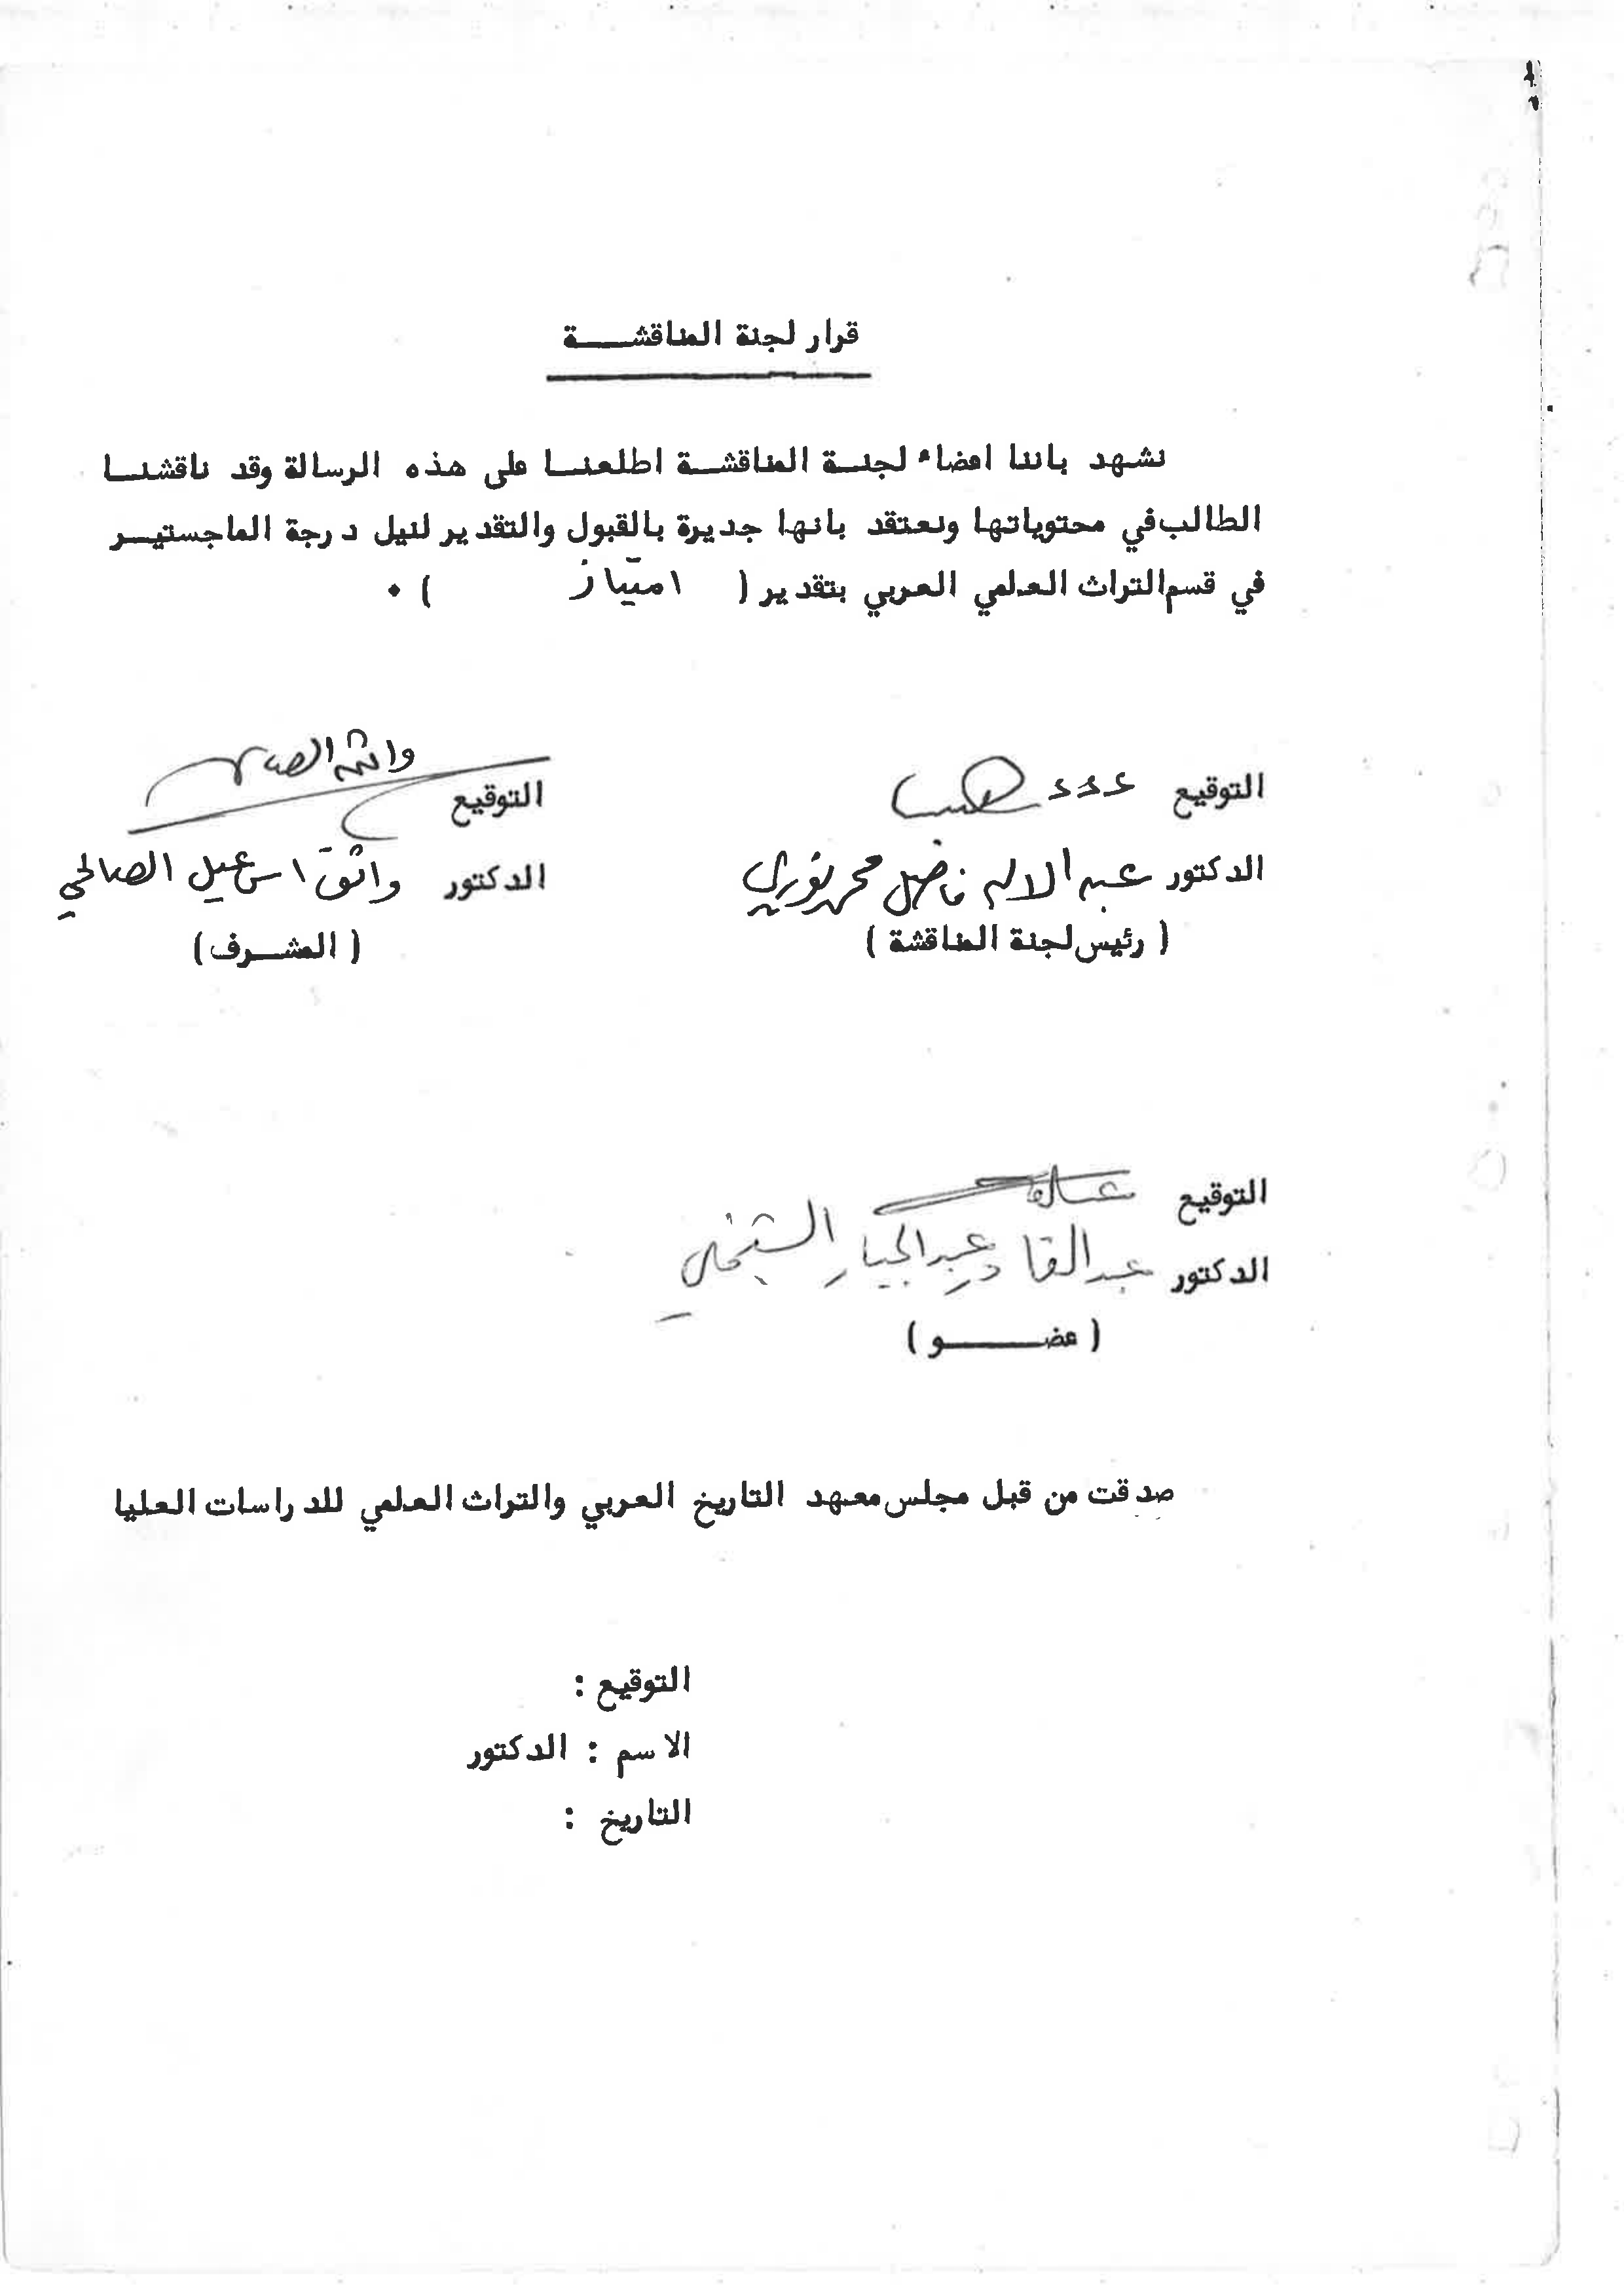 قرار لجنة المناقشـــة
نشهد باننا اعضاء لجنـة المناقشـة اطلعنـا على هذه الرسالة وقد ناقشنـا
الطالب في محتوياتها ونعتقد بانها جديرة بالقبول والتقدير لنيل درجة الماجستيـر
في قسم التراث العلمي العربي بتقدير ( امتياز ) .
التوقيع
التوقيع واثق
الدكتور عبد الاله فاضل محمد نوري
الدكتور واثق اسماعيل الصالحي
( رئيس لجنة المناقشة )
( المشـرف )
التوقيع
الدكتور عبد القادر عبد الجبار الشيخلي
( عضـــــو )
صدقت من قبل مجلس معهد التاريخ العربي والتراث العلمي للدراسات العليا
التوقيع :
الاسم : الدكتور
التاريخ :